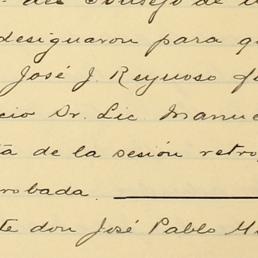 del Consejo de
designaron para q
José J. Reynoso
cio Dr. Lic Manue
ta de la sesión retro
robada.
te don José Pablo M